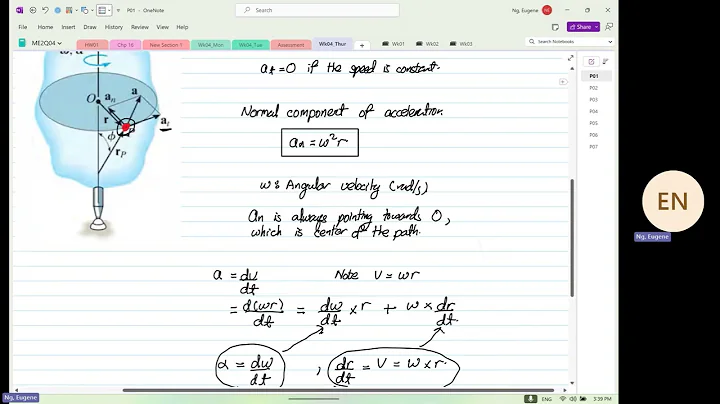 P01 - OneNote
Search
Ng, Eugene
NE
File
Home
Insert
Draw
History
Review
View
Help
Share
ME2Q04
HW01
Chp 16
New Section 7
Wk04_Mon
Wk04_Tue
Assessment
Wk04_Thur
+
Wk01
Wk02
Wk03
Search Notebooks
P01
P02
P03
P04
P05
P06
P07
ω, α
O
a_n
a
r
a_t
ϕ
r_P
a_t = 0 if the speed is constant.
Normal component of acceleration.
a_n = ω²r
ω : Angular velocity (rad/s)
a_n is always pointing towards O,
which is center of the path.
a = dv/dt Note V = ωr
= d(ωr)/dt = dω/dt × r + ω × dr/dt
α = dω/dt , dr/dt = V = ω × r.
EN
Ng, Eugene
Ng, Eugene
ENG
3:39 PM